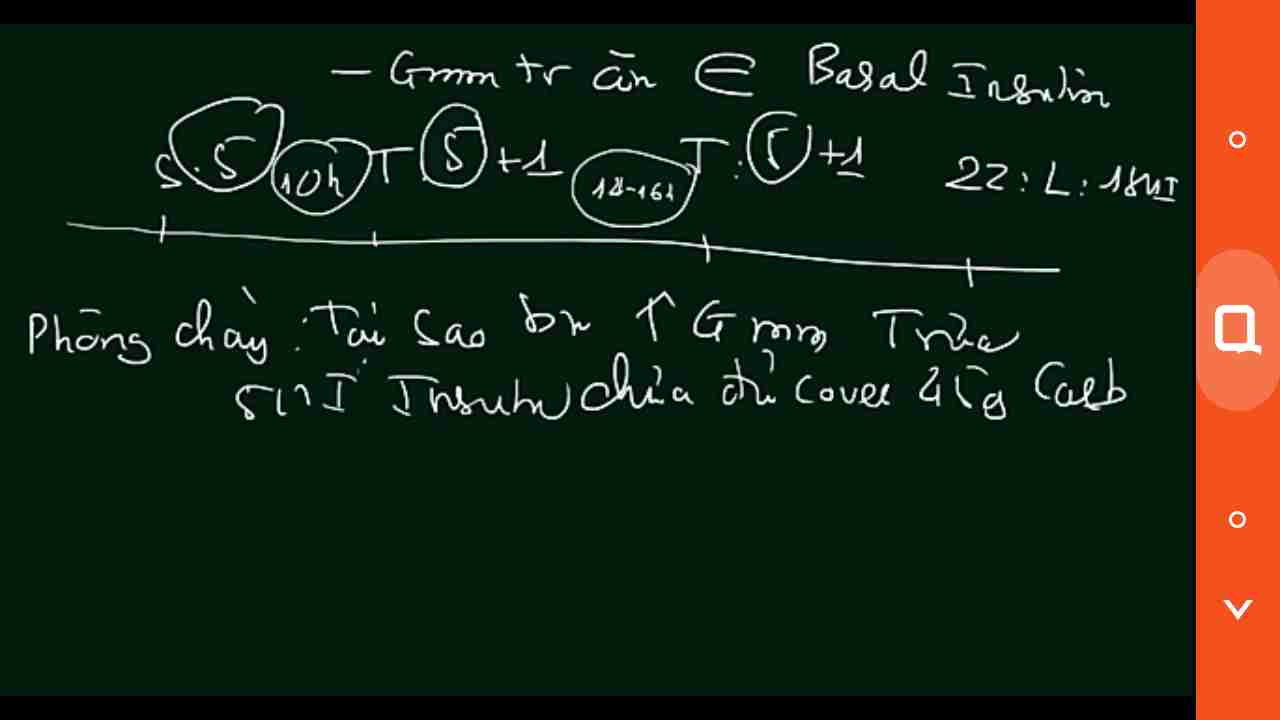 - Gmm tr ăn ∈ Basal Insulin
S: 5 10h T 5 +1 14-16h T: 5 +1 22: L: 18UI
Phòng cháy: Tại sao bn ↑ Gmm Trưa
5UI Insulin chưa đủ cover 45g Carb